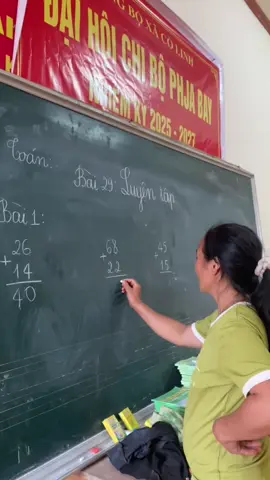 NG BỘ XÃ CÔ LINH
ĐẠI HỘI CHI BỘ PHJA BAY
NHIỆM KỲ 2025 - 2027
Toán:
Bài 29: Luyện tập
Bài 1:
26 68 45
+ + +
14 22 15
40